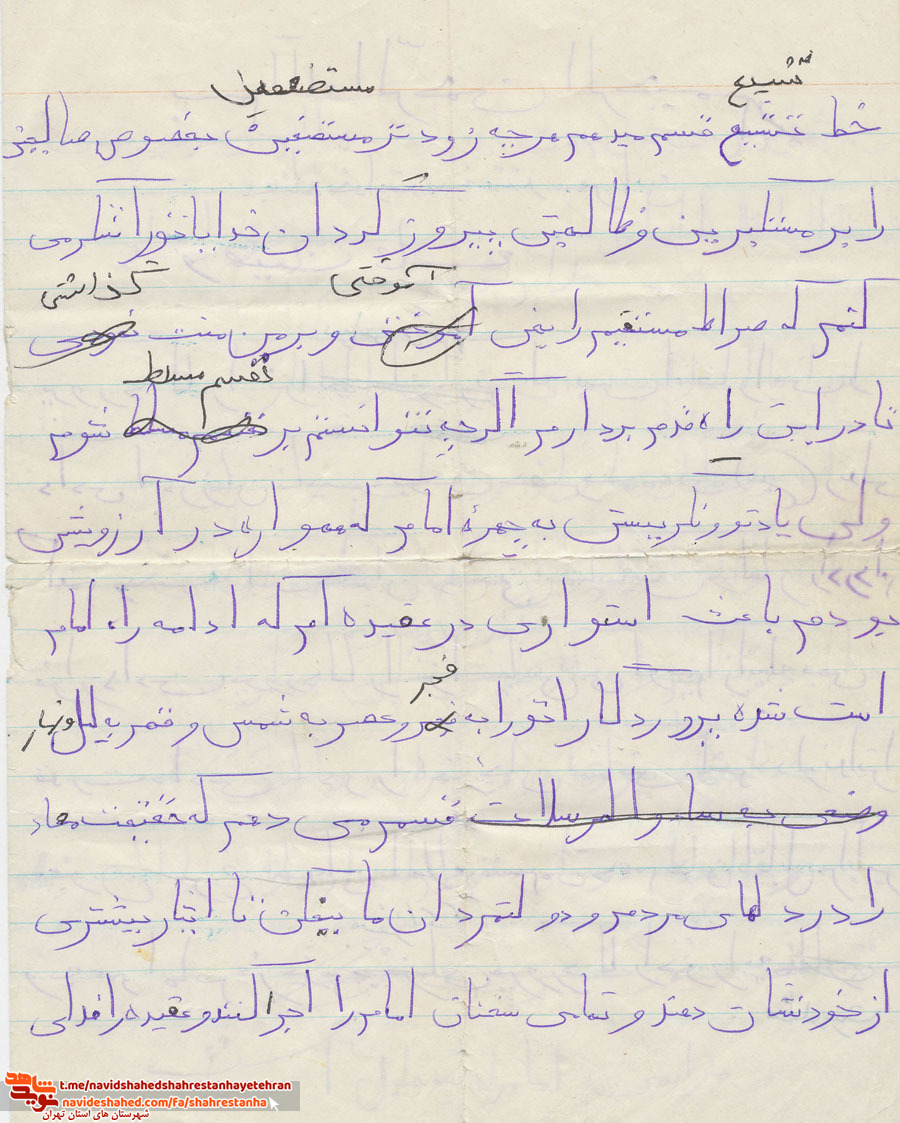 تشیع مستضعفین
خط تشیع قسم میدهم هرچه زودتر مستضعفین بخصوص
را بر مستکبرین و ظالمین پیروز گردان خدایا تو را شکر می
آموختی گذاشتی
کنم که صراط مستقیم را بمن و بر من منت
نفسم مسلط
تا در این راه قدم بردارم اگرچه نتوانستم بر شوم
ولی یاد تو و نگریستن به چهرهٔ امام که همواره در آرزویش
بودم باعث استواری در عقیده ام که ادامه راه امام
فجر
است شده پروردگارا تو را به و عصر به شمس و قمر به لیل و نهار
وضحی به سا والمرسلات قسم می دهم که حقیقت معاد
را در دلهای مردم و دولتمردان ما بیفکن تا ایثار بیشتری
از خود نشان دهند و تمامی سخنان امام را اجرا کنند و عقیده را فدای
شاهد
نوید
t.me/navidshahedshahrestanhayetehran
navideshahed.com/fa/shahrestanha
شهرستان های استان تهران